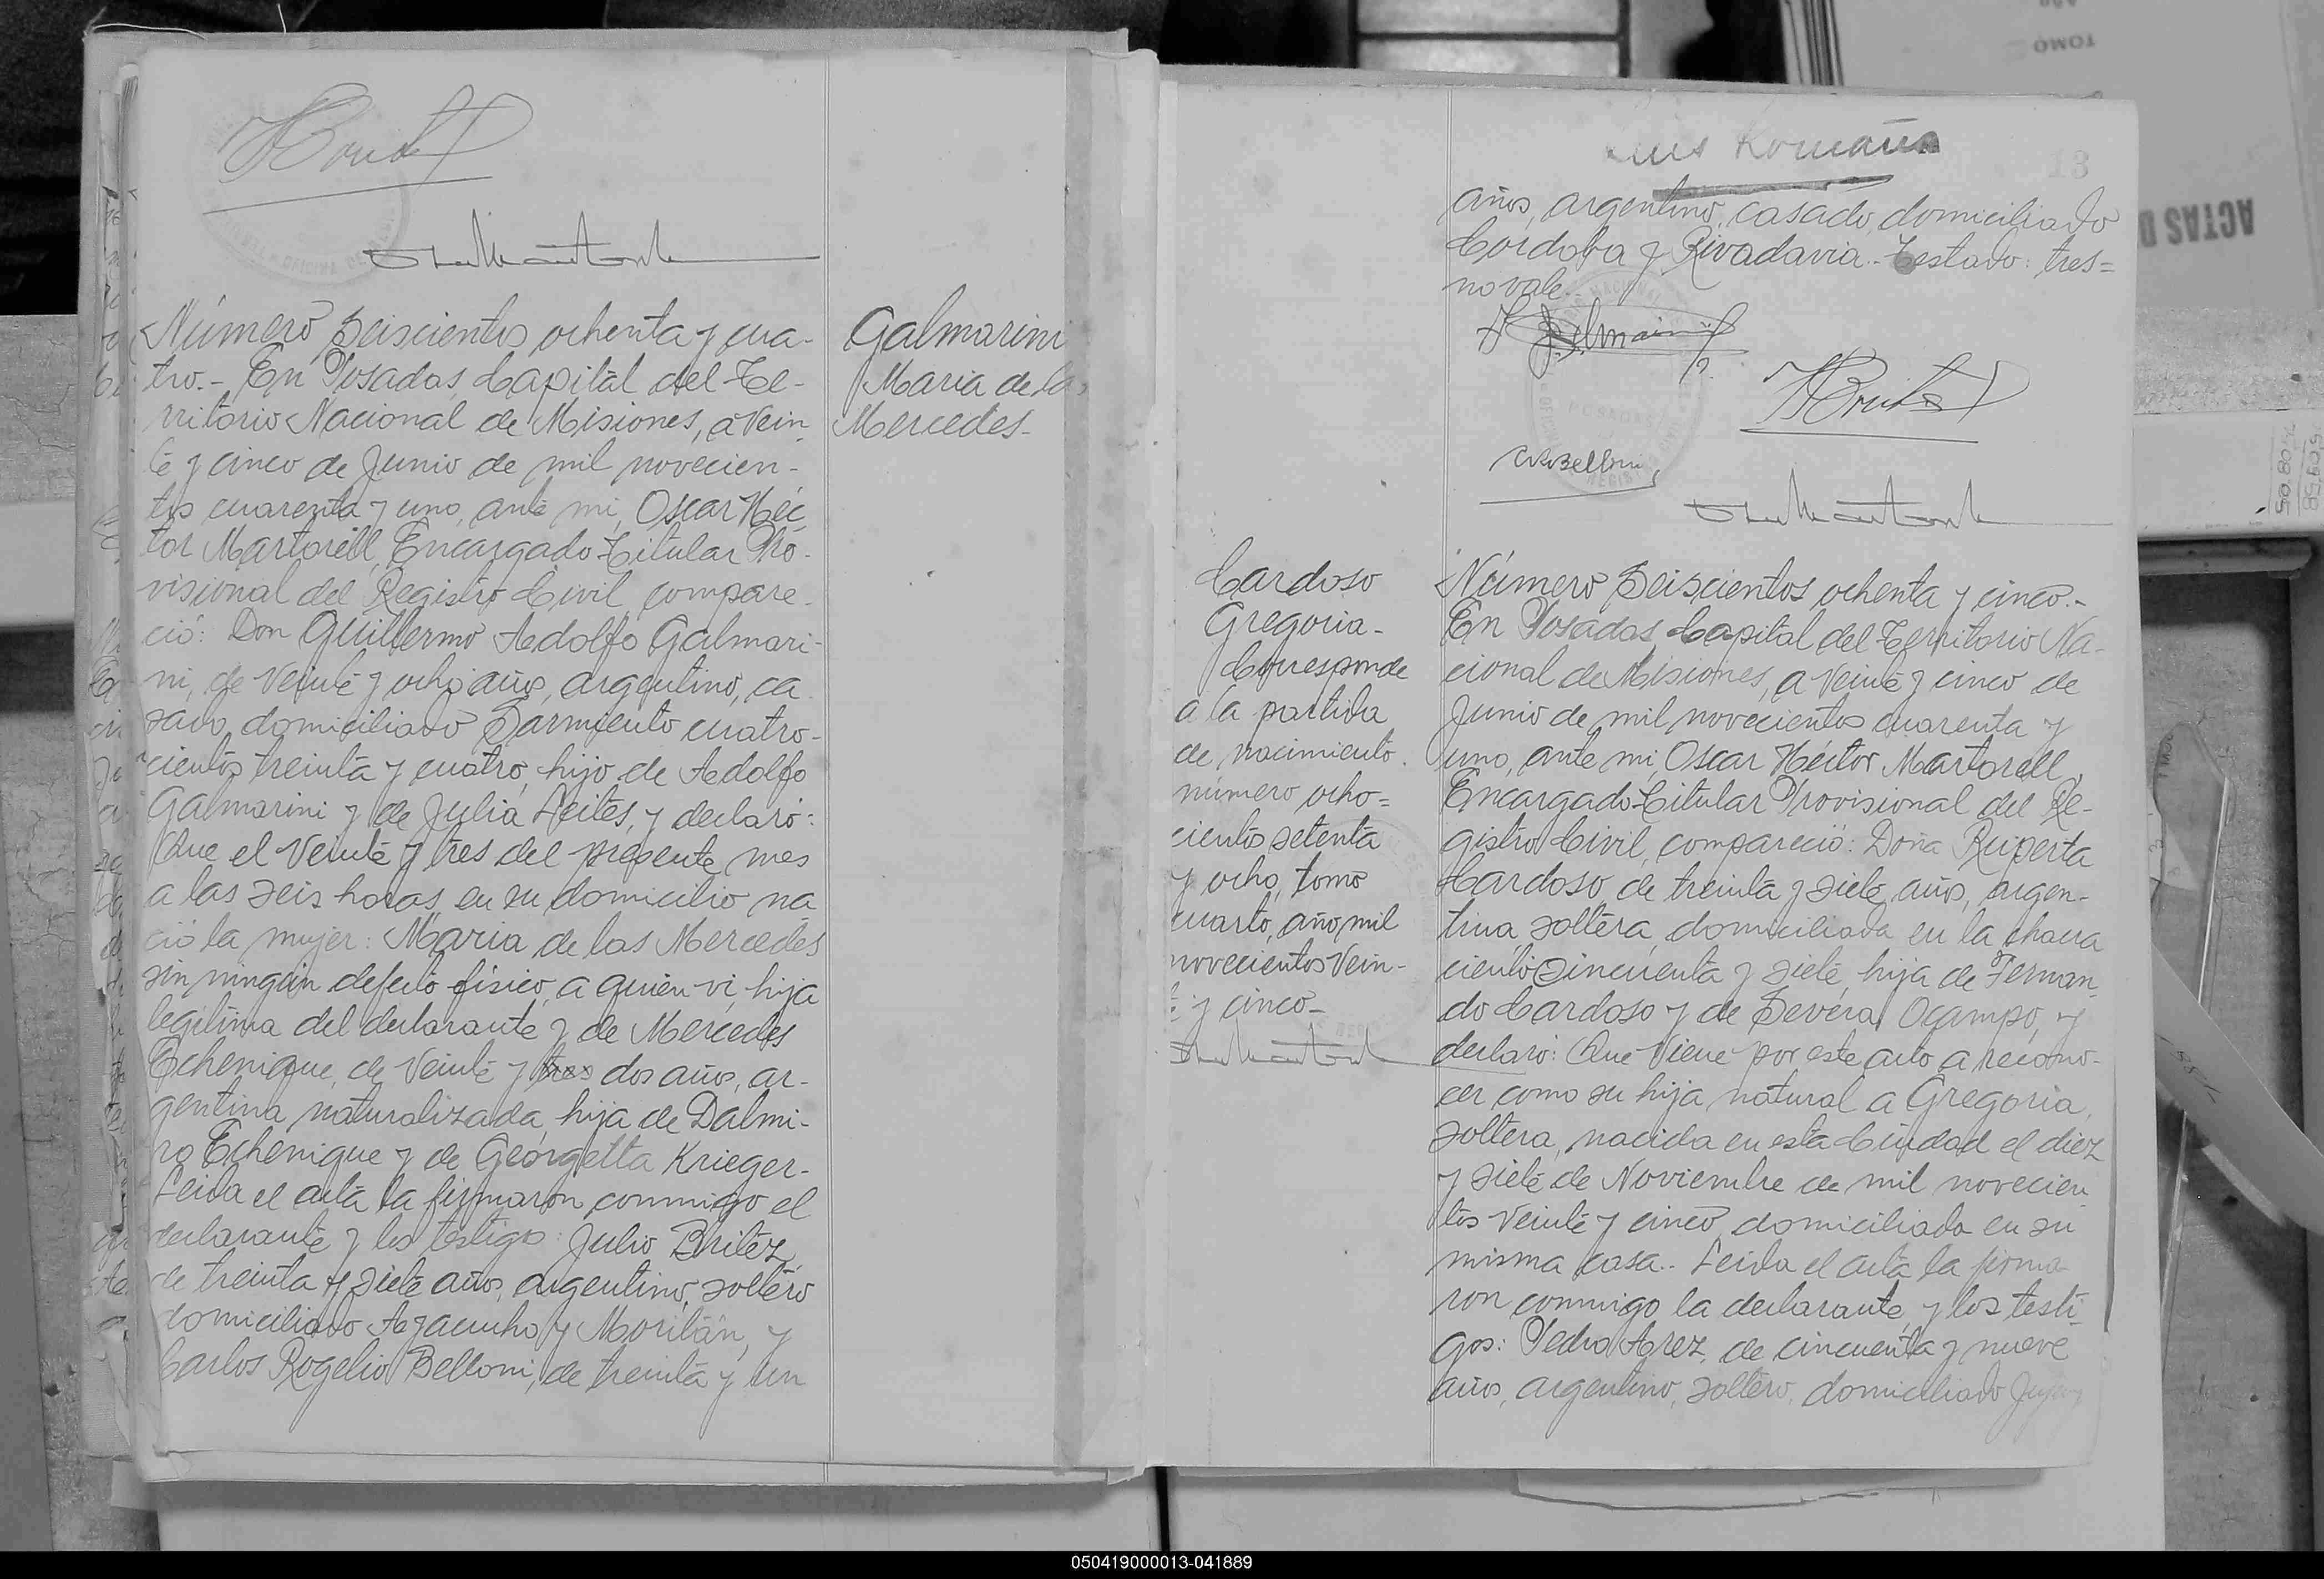 Número Seiscientos ochenta y cua-
tro.- En Posadas, Capital del Te-
rritorio Nacional de Misiones, a Vein
te y cinco de Junio de mil novecien-
tos cuarenta y uno, ante mi, Oscar Héc
tor Martorell, Encargado Titular Pro-
visional del Registro Civil, compare-
ció: Don Guillermo Adolfo Galmari-
ni, de Veinte y ocho años, argentino, ca
sado, domiciliado Sarmiento cuatro-
cientos treinta y cuatro, hijo de Adolfo
Galmarini y de Julia Leites, y declaró:
Que el Veinte y tres del presente mes
a las seis horas, en su domicilio na
ció la mujer: Maria de las Mercedes
sin ningún defecto físico, a quien vi, hija
legitima del declarante y de Mercedes
Echenique, de Veinte y tres dos años, ar-
gentina naturalizada, hija de Dalmi-
ro Echenique y de Georgetta Krieger.-
Leida el acta la firmaron conmigo el
declarante y los testigos: Julio Britez,
de treinta y siete años, argentino, soltero
domiciliado Ayacucho y Moritán, y
Carlos Rogelio Belloni, de treinta y un
Galmarini
Maria de las
Mercedes-
13
años, argentino, casado, domiciliado
Córdoba y Rivadavia.- Testado: tres=
no vale.-
POSADAS
CRBelloni
Cardoso
Gregoria-
Corresponde
a la partida
de nacimiento
número ocho=
cientos setenta
y ocho, tomo
cuarto, año mil
novecientos Vein-
te y cinco-
Número Seiscientos ochenta y cinco.-
En Posadas, Capital del Territorio Na-
cional de Misiones, a Veinte y cinco de
Junio de mil novecientos cuarenta y
uno, ante mi, Oscar Héctor Martorell,
Encargado Titular Provisional del Re-
gistro Civil, compareció: Doña Ruperta
Cardoso de treinta y siete años, argen-
tina, soltera, domiciliada en la chacra
ciento cincuenta y siete, hija de Fernan
do Cardoso y de Severa Ocampo, y
declaró: Que Viene por este acto a recono-
cer como su hija natural a Gregoria,
soltera, nacida en esta Ciudad el diez
y siete de Noviembre de mil novecien
tos veinte y cinco, domiciliada en su
misma casa.- Leida el acta la firma-
ron conmigo la declarante, y los testi-
gos: Pedro Agrez, de cincuenta y nueve
años, argentino, soltero, domiciliado Jujuy
ACTAS D
TOMO
050419000013-041889